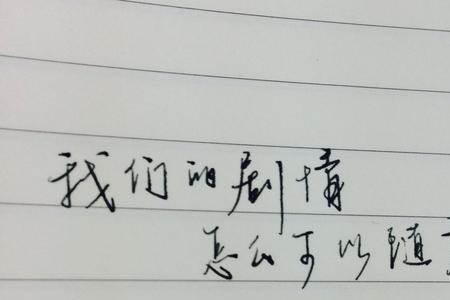 我们的剧情
怎么可以随